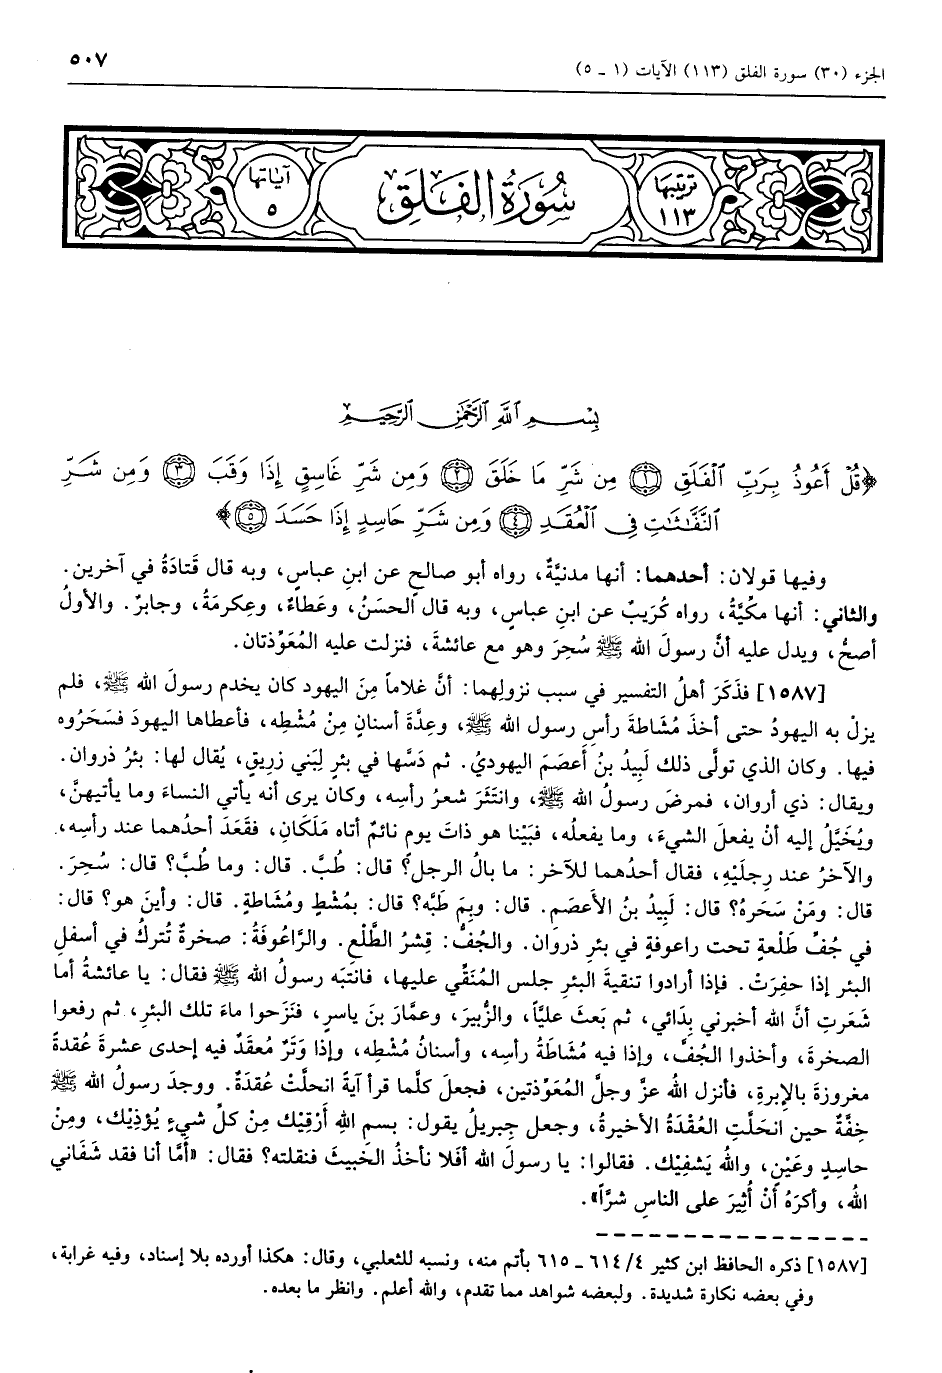 الجزء (٣٠) سورة الفلق (١١٣) الآيات (١ ـ ٥)
٥٠٧
ترتيبها
١١٣
سُورَةُ الفَلَق
آياتها
٥
بِسْمِ ٱللَّهِ ٱلرَّحْمَٰنِ ٱلرَّحِيمِ
﴿قُلْ أَعُوذُ بِرَبِّ ٱلْفَلَقِ ۝١ مِن شَرِّ مَا خَلَقَ ۝٢ وَمِن شَرِّ غَاسِقٍ إِذَا وَقَبَ ۝٣ وَمِن شَرِّ
ٱلنَّفَّٰثَٰتِ فِى ٱلْعُقَدِ ۝٤ وَمِن شَرِّ حَاسِدٍ إِذَا حَسَدَ ۝٥﴾
وفيها قولان: أحدهما: أنها مدنيَّةٌ، رواه أبو صالحٍ عن ابنِ عباسٍ، وبه قال قَتادَةُ في آخرين.
والثاني: أنها مكيَّةٌ، رواه كُرَيبٌ عن ابنِ عباسٍ، وبه قال الحسَنُ، وعَطاءٌ، وعِكرمَةُ، وجابرٌ. والأولُ
أصحُّ، ويدل عليه أنَّ رسولَ الله ﷺ سُحِرَ وهو مع عائشةَ، فنزلت عليه المُعَوِّذتان.
[١٥٨٧] فذَكَرَ أهلُ التفسير في سبب نزولِهما: أنَّ غلاماً مِنَ اليهود كان يخدم رسولَ الله ﷺ، فلم
يزلْ به اليهودُ حتى أخذَ مُشَاطةَ رأسِ رسول الله ﷺ، وعِدَّةَ أسنانٍ مِنْ مُشْطِه، فأعطاها اليهودَ فسَحَرُوه
فيها. وكان الذي تولَّى ذلك لَبِيدُ بنُ أَعصَمَ اليهوديُّ. ثم دَسَّها في بئرٍ لِبَني زريقٍ، يُقال لها: بئرُ ذروان.
ويقال: ذي أروان، فمرضَ رسولُ الله ﷺ، وانتَثَرَ شعرُ رأسِه، وكان يرى أنه يأتي النساءَ وما يأتيهنَّ،
ويُخَيَّلُ إليه أنْ يفعلَ الشيءَ، وما يفعلُه، فبَيْنا هو ذاتَ يومٍ نائمٌ أتاه مَلَكانِ، فقَعَدَ أحدُهما عند رأسِه،
والآخرُ عند رِجلَيْهِ، فقال أحدُهما للآخر: ما بالُ الرجلِ؟ قال: طُبَّ. قال: وما طُبَّ؟ قال: سُحِرَ.
قال: ومَنْ سَحَرهُ؟ قال: لَبِيدُ بنُ الأعصَمِ. قال: وبِمَ طَبَّه؟ قال: بمُشْطٍ ومُشَاطةٍ. قال: وأينَ هو؟ قال:
في جُفِّ طَلْعةٍ تحت راعوفةٍ في بئرِ ذروان. والجُفُّ: قِشرُ الطَّلْعِ. والرَّاعُوفَةُ: صخرةٌ تُتركُ في أسفلِ
البئر إذا حفِرَتْ. فإذا أرادوا تنقيةَ البئرِ جلس المُنَقِّي عليها، فانتبَه رسولُ الله ﷺ فقال: يا عائشةُ أما
شَعَرتِ أنَّ الله أخبرني بِدَائي، ثم بَعثَ عليّاً، والزُّبيرَ، وعمَّارَ بنَ ياسرٍ، فنَزَحوا ماءَ تلك البئرِ، ثم رفعوا
الصخرةَ، وأخذوا الجُفَّ، وإذا فيه مُشَاطةُ رأسِه، وأسنانُ مُشْطِه، وإذا وَتَرٌ مُعقَدٌ فيه إحدى عشرةَ عُقدةً
مغروزةً بالإبرةِ، فأنزل اللهُ عزَّ وجلَّ المُعَوِّذتين، فجعلَ كلَّما قرأ آيةً انحلَّتْ عُقدَةٌ. ووجدَ رسولُ الله ﷺ
خِفَّةٌ حين انحَلَّتِ العُقْدَةُ الأخيرةُ، وجعل جِبريلُ يقول: بسمِ اللهِ أَرْقِيْك مِنْ كلِّ شيءٍ يُؤذِيْك، ومِنْ
حاسِدٍ وعَيْنٍ، واللهُ يَشفِيْك. فقالوا: يا رسولَ الله أفَلا نأخذُ الخبيثَ فنقلته؟ فقال: «أمَّا أنا فقد شَفَاني
اللهُ، وأكرَهُ أنْ أُثِيرَ على الناسِ شرّاً».
[١٥٨٧] ذكره الحافظ ابن كثير ٤/ ٦١٤ ـ ٦١٥ بأتم منه، ونسبه للثعلبي، وقال: هكذا أورده بلا إسناد، وفيه غرابة،
وفي بعضه نكارة شديدة. ولبعضه شواهد مما تقدم، والله أعلم. وانظر ما بعده.